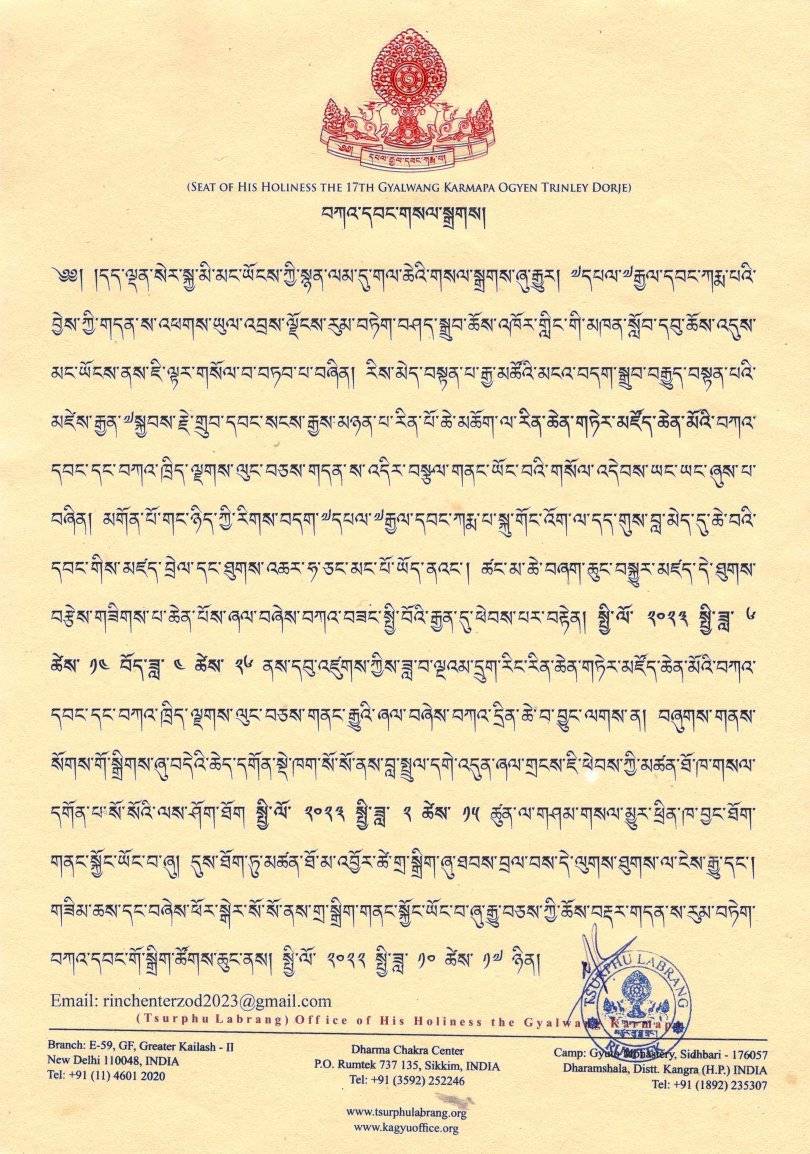 ༄༅། །དཔལ་རྒྱལ་དབང་ཀརྨ་པ།
(SEAT OF HIS HOLINESS THE 17TH GYALWANG KARMAPA OGYEN TRINLEY DORJE)
བཀའ་དབང་གསལ་སྒྲགས།
༄༅། །དད་ལྡན་སེར་སྐྱ་མི་མང་ཡོངས་ཀྱི་སྙན་ལམ་དུ་གལ་ཆེའི་གསལ་སྒྲགས་ཞུ་རྒྱུར། ༧དཔལ་༧རྒྱལ་དབང་ཀརྨ་པའི་
བྱེས་ཀྱི་གདན་ས་འཕགས་ཡུལ་འབྲས་ལྗོངས་རུམ་བཏེག་བཤད་སྒྲུབ་ཆོས་འཁོར་གླིང་གི་མཁན་སློབ་དབུ་ཆོས་འདུས་
མང་ཡོངས་ནས་ཇི་ལྟར་གསོལ་བ་བཏབ་པ་བཞིན། རིས་མེད་བསྟན་པ་རྒྱ་མཚོའི་མངའ་བདག་སྒྲུབ་བརྒྱུད་བསྟན་པའི་
མཛེས་རྒྱན་༧སྐྱབས་རྗེ་གྲུབ་དབང་སངས་རྒྱས་མཉན་པ་རིན་པོ་ཆེ་མཆོག་ལ་རིན་ཆེན་གཏེར་མཛོད་ཆེན་མོའི་བཀའ་
དབང་དང་བཀའ་ཁྲིད་ལྗགས་ལུང་བཅས་གདན་ས་འདིར་བསྩལ་གནང་ཡོང་བའི་གསོལ་འདེབས་ཡང་ཡང་ཞུས་པ་
བཞིན། མགོན་པོ་གང་ཉིད་ཀྱི་རིགས་བདག་༧དཔལ་༧རྒྱལ་དབང་ཀརྨ་པ་སྐུ་གོང་འོག་ལ་དད་གུས་བླ་མེད་དུ་ཆེ་བའི་
དབང་གིས་མཛད་བྲེལ་དང་ཐུགས་འཆར་ཧ་ཅང་མང་པོ་ཡོད་ནའང་། ཚང་མ་ཆེ་བཞག་ཆུང་བསྐྱུར་མཛད་དེ་ཐུགས་
བརྩེས་གཟིགས་པ་ཆེན་པོས་ཞལ་བཞེས་བཀའ་བཟང་སྤྱི་བོའི་རྒྱན་དུ་ཕེབས་པར་བརྟེན། སྤྱི་ལོ་ ༢༠༢༣ སྤྱི་ཟླ་ ༦
ཚེས་ ༡༤ བོད་ཟླ་ ༤ ཚེས་ ༢༦ ནས་དབུ་འཛུགས་ཀྱིས་ཟླ་བ་ལྔའམ་དྲུག་རིང་རིན་ཆེན་གཏེར་མཛོད་ཆེན་མོའི་བཀའ་
དབང་དང་བཀའ་ཁྲིད་ལྗགས་ལུང་བཅས་གནང་རྒྱུའི་ཞལ་བཞེས་བཀའ་དྲིན་ཆེ་བ་བྱུང་ལགས་ན། བཞུགས་གནས་
སོགས་གོ་སྒྲིགས་ཞུ་བདེའི་ཆེད་དགོན་སྡེ་ཁག་སོ་སོ་ནས་བླ་སྤྲུལ་དགེ་འདུན་ཞལ་གྲངས་ཇི་ཕེབས་ཀྱི་མཚན་ཐོ་ཁ་གསལ་
དགོན་པ་སོ་སོའི་ལས་ཤོག་ཐོག སྤྱི་ལོ་ ༢༠༢༣ སྤྱི་ཟླ་ ༢ ཚེས་ ༡༥ ཚུན་ལ་གཤམ་གསལ་མྱུར་ཕྲིན་ཁ་བྱང་ཐོག་
གནང་སྐྱོང་ཡོང་བ་ཞུ། དུས་ཐོག་ཏུ་མཚན་ཐོ་མ་འབྱོར་ཚེ་གྲ་སྒྲིག་ཞུ་ཐབས་བྲལ་བས་དེ་ལུགས་ཐུགས་ལ་ངེས་རྒྱུ་དང་།
གཟིམ་ཆས་དང་བཞེས་ཕོར་སྒེར་སོ་སོ་ནས་གྲ་སྒྲིག་གནང་སྐྱོང་ཡོང་བ་ཞུ་རྒྱུ་བཅས་ཀྱི་ཆོས་བརྡར་གདན་ས་རུམ་བཏེག་
བཀའ་དབང་གོ་སྒྲིག་ཚོགས་ཆུང་ནས། སྤྱི་ལོ་ ༢༠༢༢ སྤྱི་ཟླ་ ༡༠ ཚེས་ ༡༧ ཉིན།
TSURPHU LABRANG
RUMTEK
Email: rinchenterzod2023@gmail.com
(Tsurphu Labrang) Office of His Holiness the Gyalwang Karmapa
Branch: E-59, GF, Greater Kailash - II
New Delhi 110048, INDIA
Tel: +91 (11) 4601 2020
Dharma Chakra Center
P.O. Rumtek 737 135, Sikkim, INDIA
Tel: +91 (3592) 252246
Camp: Gyuto Monastery, Sidhbari - 176057
Dharamshala, Distt. Kangra (H.P.) INDIA
Tel: +91 (1892) 235307
www.tsurphulabrang.org
www.kagyuoffice.org